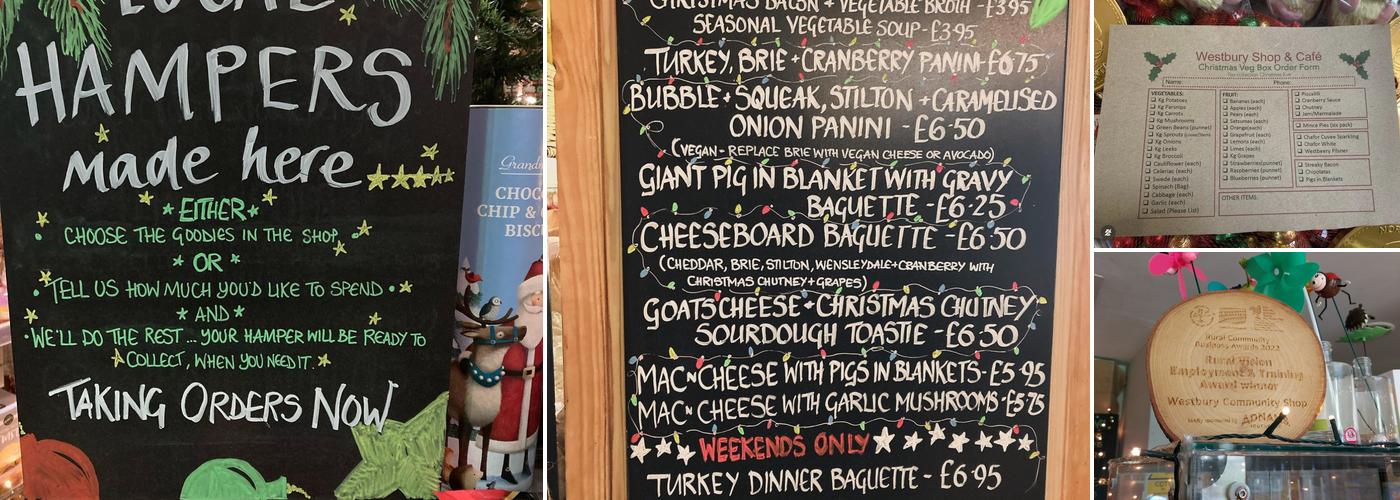 LOCAL
HAMPERS
made here
EITHER
CHOOSE THE GOODIES IN THE SHOP
OR
TELL US HOW MUCH YOU'D LIKE TO SPEND
AND
WE'LL DO THE REST ... YOUR HAMPER WILL BE READY TO
COLLECT, WHEN YOU NEED IT.
TAKING ORDERS NOW
CHOC
CHIP &
BISCU
CHRISTMAS BACON + VEGETABLE BROTH - £3.95
SEASONAL VEGETABLE SOUP - £3.95
TURKEY, BRIE + CRANBERRY PANINI - £6.75
BUBBLE + SQUEAK, STILTON + CARAMELISED
ONION PANINI - £6.50
(VEGAN - REPLACE BRIE WITH VEGAN CHEESE OR AVOCADO)
GIANT PIG IN BLANKET WITH GRAVY
BAGUETTE - £6.25
CHEESEBOARD BAGUETTE - £6.50
(CHEDDAR, BRIE, STILTON, WENSLEYDALE + CRANBERRY WITH
CHRISTMAS CHUTNEY + GRAPES)
GOATS CHEESE + CHRISTMAS CHUTNEY
SOURDOUGH TOASTIE - £6.50
MAC N CHEESE WITH PIGS IN BLANKETS - £5.95
MAC N CHEESE WITH GARLIC MUSHROOMS - £5.75
WEEKENDS ONLY
TURKEY DINNER BAGUETTE - £6.95
Westbury Shop & Café
Christmas Veg Box Order Form
Name: Phone:
VEGETABLES:
Kg Potatoes
Kg Parsnips
Kg Carrots
Kg Mushrooms
Green Beans (punnet)
Kg Sprouts
Kg Onions
Kg Leeks
Kg Broccoli
Cauliflower (each)
Celeriac (each)
Swede (each)
Spinach (Bag)
Cabbage (each)
Garlic (each)
Salad (Please List)
FRUIT:
Bananas (each)
Apples (each)
Pears (each)
Satsumas (each)
Orange(each)
Grapefruit (each)
Lemons (each)
Limes (each)
Kg Grapes
Strawberries(punnet)
Raspberries (punnet)
Blueberries (punnet)
Piccalilli
Cranberry Sauce
Chutney
Jam/Marmalade
Mince Pies (six pack)
Chafor Cuvee Sparkling
Chafor White
Westbeery Pilsner
Streaky Bacon
Chipolatas
Pigs in Blankets
OTHER ITEMS:
Rural Community
Business Awards 2022
Rural Vision
Employment & Training
Award winner
Westbury Community Shop